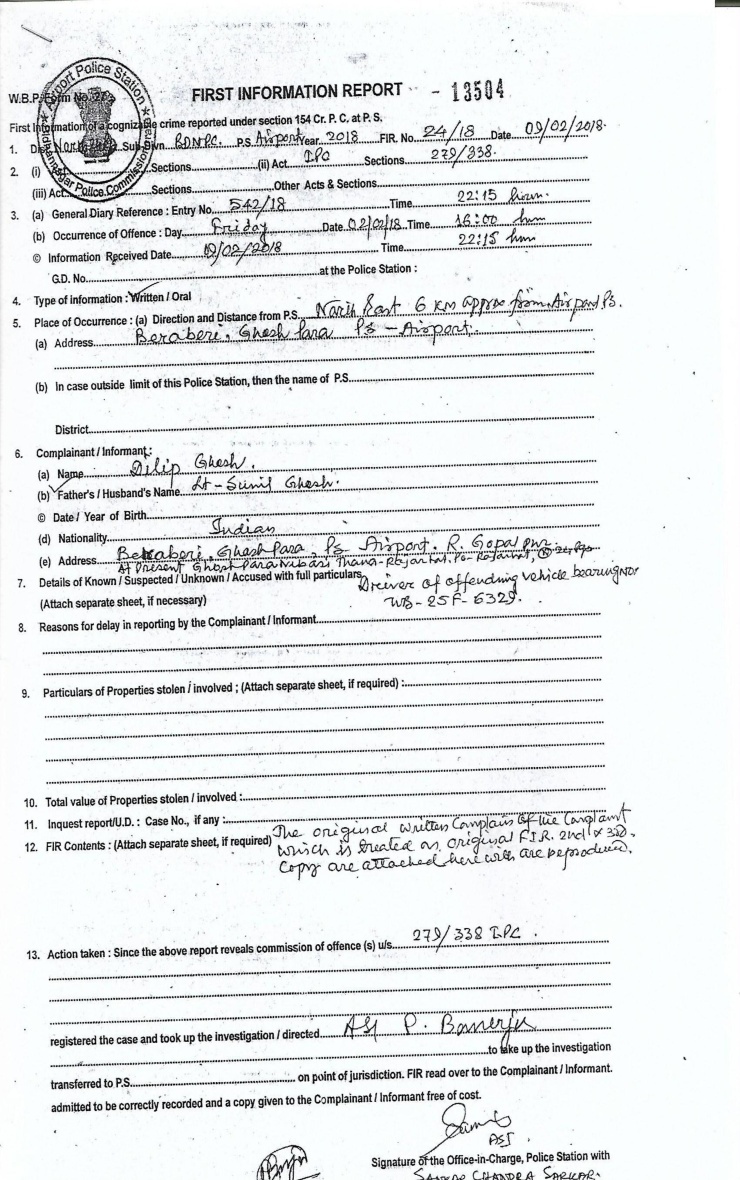 Airport Police Station
W.B.P. Form No. 27
FIRST INFORMATION REPORT - 13504
First Information of a cognizable crime reported under section 154 Cr. P. C. at P. S.
1. Sub-Dvn. BDNPC. P.S Airport Year 2018 FIR. No. 24/18 Date 09/02/2018.
2. (i) Sections (ii) Act IPC Sections 279/338.
(iii) Act Sections Other Acts & Sections
3. (a) General Diary Reference : Entry No. 542/18 Time 22:15 hrs.
(b) Occurrence of Offence : Day Friday Date 02/02/18 Time 16:00 hrs
© Information Received Date 09/02/2018 Time 22:15 hrs
G.D. No. at the Police Station :
4. Type of information : Written / Oral
5. Place of Occurrence : (a) Direction and Distance from P.S. North East 6 KM approx from Airport PS.
(a) Address Beraberi, Ghosh Para PS - Airport.
(b) In case outside limit of this Police Station, then the name of P.S.
District
6. Complainant / Informant :
(a) Name Dilip Ghosh.
(b) Father's / Husband's Name Lt - Sunil Ghosh.
© Date / Year of Birth
(d) Nationality Indian
(e) Address Beraberi, Ghosh Para, PS Airport. R. Gopalpur.
At Present Ghosh Para Thana - Rajarhat, Po - Rajarhat,
7. Details of Known / Suspected / Unknown / Accused with full particulars Driver of offending vehicle bearing No.
(Attach separate sheet, if necessary) WB - 25F - 6329.
8. Reasons for delay in reporting by the Complainant / Informant
9. Particulars of Properties stolen / involved ; (Attach separate sheet, if required) :
10. Total value of Properties stolen / involved :
11. Inquest report/U.D. : Case No., if any :
The original written Complain of the Complaint
12. FIR Contents : (Attach separate sheet, if required) which is treated as original F.I.R. 2nd & 3rd.
Copy are attached here with are reproduced.
13. Action taken : Since the above report reveals commission of offence (s) u/s. 279/338 IPC.
registered the case and took up the investigation / directed ASI P. Banerjee
to take up the investigation
transferred to P.S. on point of jurisdiction. FIR read over to the Complainant / Informant.
admitted to be correctly recorded and a copy given to the Complainant / Informant free of cost.
ASI
Signature of the Office-in-Charge, Police Station with
CHANDRA SARKAR.